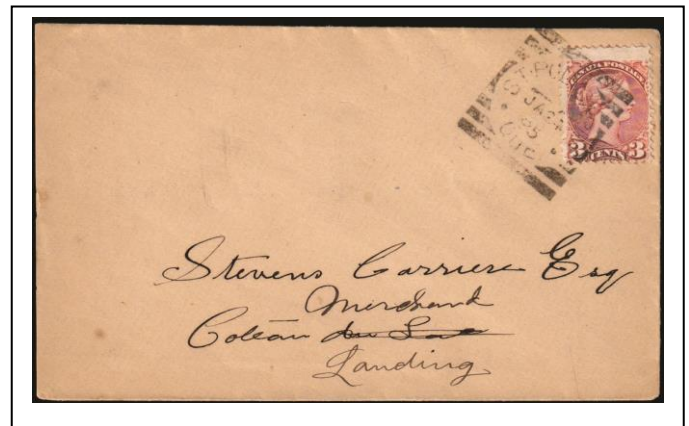 ST. POL
JA 24
95
QUE
CANADA POSTAGE
3 CENTS 3
Stevens Carriere Esq
Merchant
Coteau du Lac
Landing